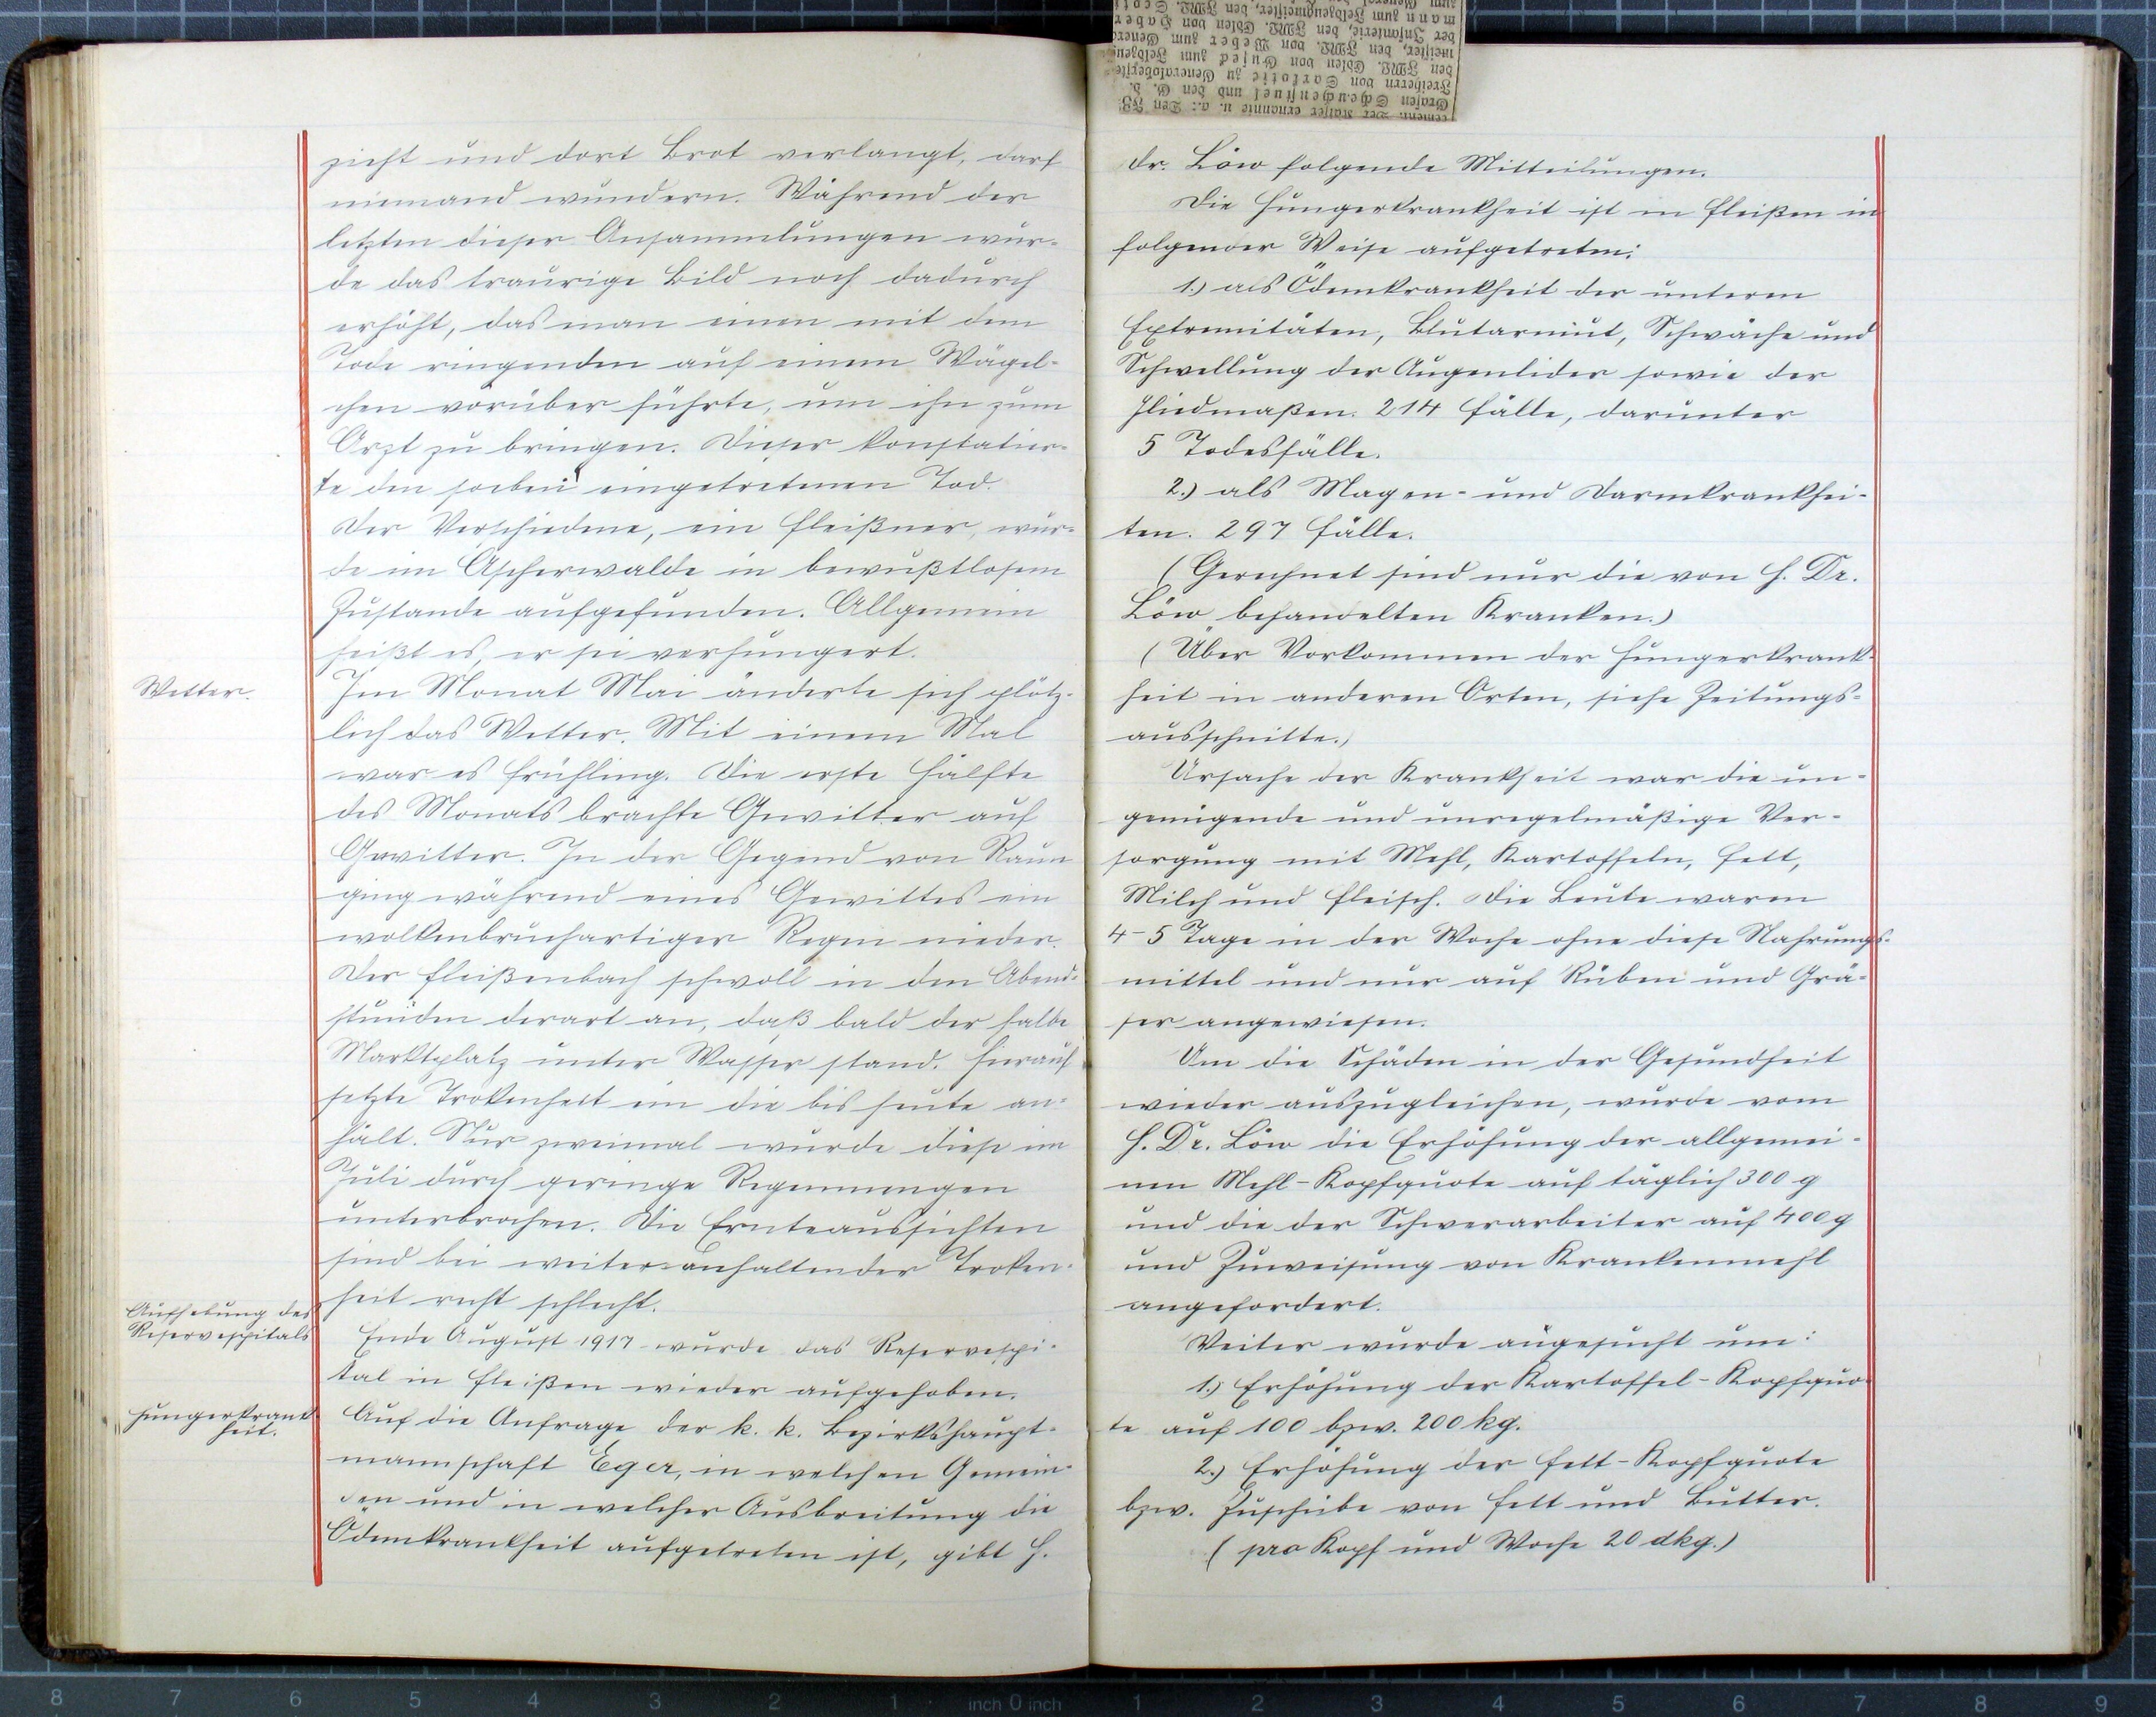 zieht und dort Brot verlangt, darf
niemand wundern. Während der
letzten dieser Ansammlungen wur-
de das traurige Bild noch dadurch
erhöht, das man einen mit dem
Tode ringenden auf einem Wägel-
chen vorüber führte, um ihn zum
Arzt zu bringen. Dieser konstatier-
te den soeben eingetretenen Tod.
Der Verschiedene, ein Fleißner, wur-
de im Ascherwalde in bewußtlosem
Zustande aufgefunden. Allgemein
heißt es, er sei verhungert.
Wetter.
Im Monat Mai änderte sich plötz-
lich das Wetter. Mit einem Mal
war es Frühling. Die erste Hälfte
des Monats brachte Gewitter auf
Gewitter. In der Gegend von Raun
ging während eines Gewittes ein
wolkenbruchartiger Regen nieder.
Der Fleißenbach schwoll in den Abend-
stunden derart an, daß bald der halbe
Marktplatz unter Wasser stand. Hierauf
setzte Trokenheit ein die bis heute an-
hält. Nur zweimal wurde diese im
Juli durch geringe Regenmengen
unterbrochen. Die Ernteaussichten
sind bei weiter anhaltender Troken-
heit recht schlecht.
Aufhebung des
Reservespitals
Ende August 1917 wurde das Reservespi-
tal in Fleißen wieder aufgehoben.
Hungerkrank-
heit.
Auf die Anfrage der k. k. Bezirkshaupt-
mannschaft Eger, in welchen Gemein-
den und in welcher Ausbreitung die
Ödemkrankheit aufgetreten ist, gibt H.
cement. Der Kaiser ernannte u. a.: Den FZ
Grafen Scheuchenstuel und den G. d.
Freiherrn von Sarkotic zu Generaloberste
den FML. Edlen von Gusseck zum Feldzeug
meister, den FML. von Weber zum Genera
der Infanterie, den FML. Edlen von Haber
mann zum Feldzeugmeister, den FML. Scoti
Dr. Löw folgende Mitteilungen.
Die Hungerkrankheit ist in Fleißen in
folgender Weise aufgetreten:
1.) als Ödemkrankheit der unteren
Extremitäten, Blutarmut, Schwäche und
Schwellung der Augenlider sowie der
Gliedmaßen. 214 Fälle, darunter
5 Todesfälle.
2.) als Magen- und Darmkrankhei-
ten. 297 Fälle.
(Gerechnet sind nur die von H. Dr.
Löw behandelten Kranken.)
(Über Vorkommen der Hungerkrank-
heit in anderen Orten, siehe Zeitungs-
ausschnitte.)
Ursache der Krankheit war die un-
genügende und unregelmäßige Ver-
sorgung mit Mehl, Kartoffeln, Fett,
Milch und Fleisch. Die Leute waren
4-5 Tage in der Woche ohne diese Nahrungs-
mittel und nur auf Rüben und Grä-
ser angewiesen.
Um die Schäden in der Gesundheit
wieder auszugleichen, wurde vom
H. Dr. Löw die Erhöhung der allgemei-
nen Mehl-Kopfquote auf täglich 300 g
und die der Schwerarbeiter auf 400 g
und Zuweisung von Krankenmehl
angefordert.
Weiter wurde angesucht um:
1.) Erhöhung der Kartoffel-Kopfquo-
te auf 100 bzw. 200 kg.
2.) Erhöhung der Fett-Kopfquote
bzw. Zuschübe von Fett und Butter.
(pro Kopf und Woche 20 dkg.)
8 7 6 5 4 3 2 1 inch 0 inch 1 2 3 4 5 6 7 8 9